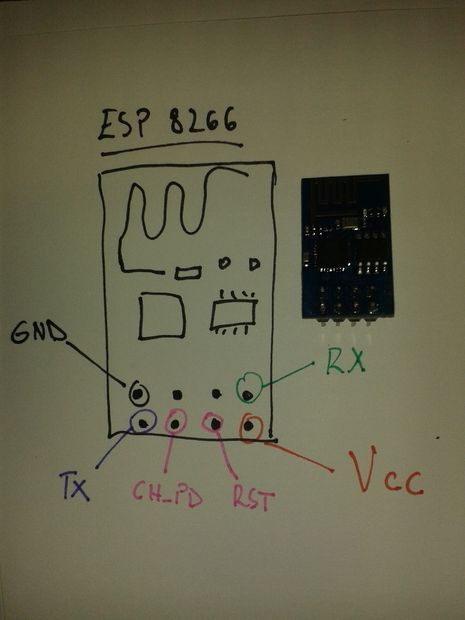 ESP 8266
GND
RX
TX
CH_PD
RST
Vcc